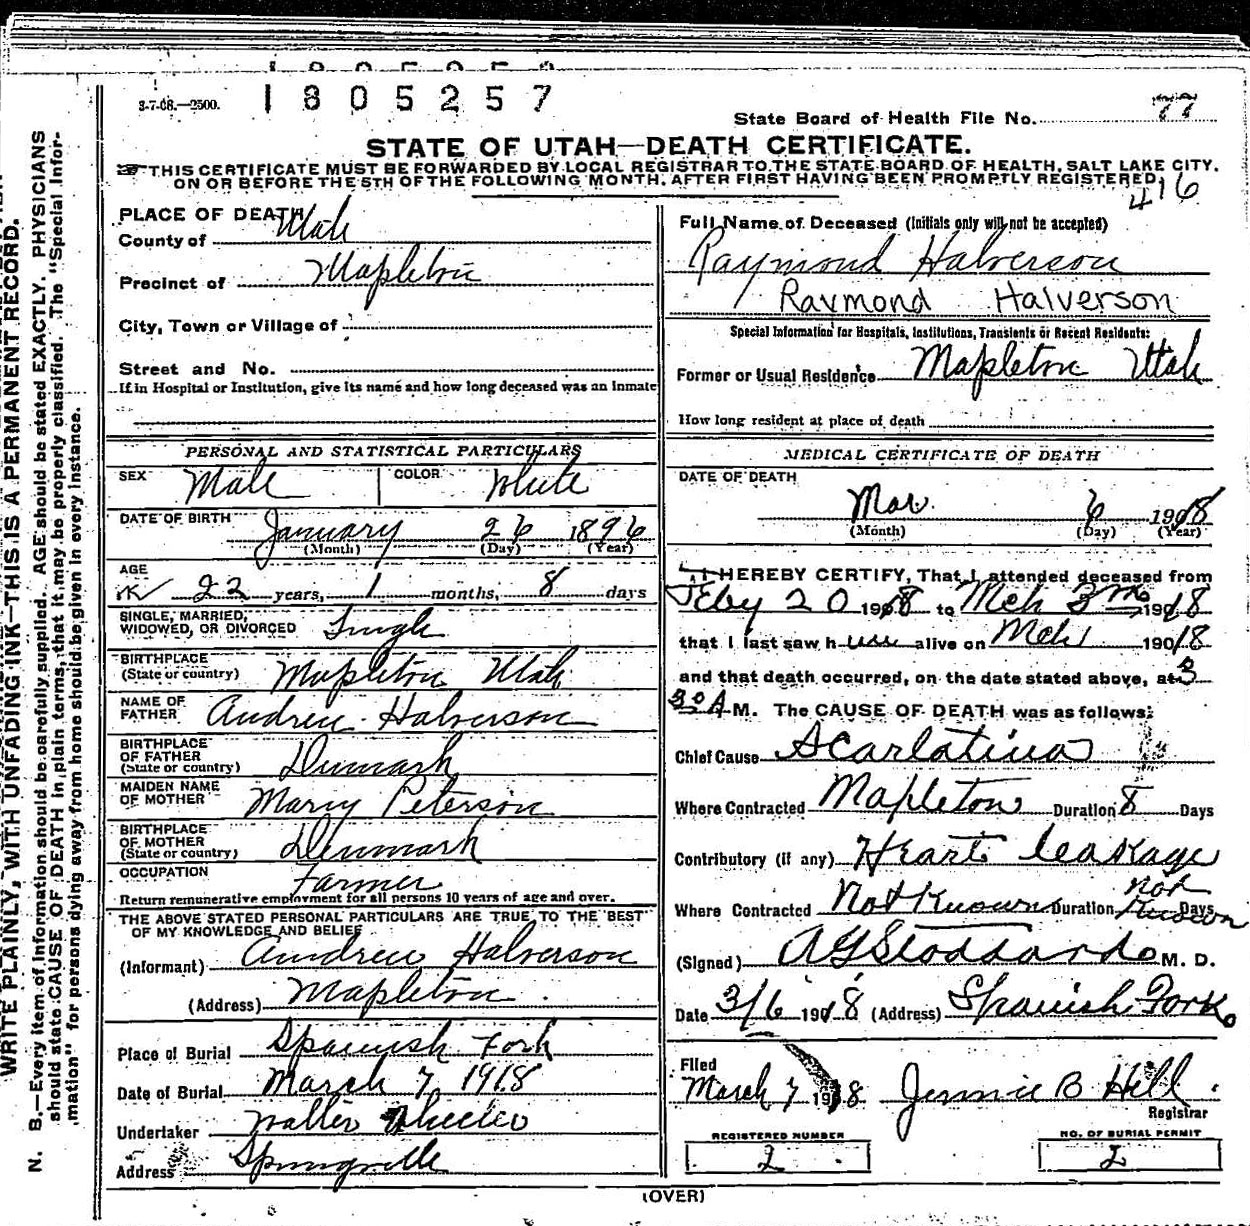 3-7-08.—2500.
1805257
State Board of Health File No. 77
STATE OF UTAH—DEATH CERTIFICATE.
THIS CERTIFICATE MUST BE FORWARDED BY LOCAL REGISTRAR TO THE STATE BOARD OF HEALTH, SALT LAKE CITY,
ON OR BEFORE THE 5TH OF THE FOLLOWING MONTH, AFTER FIRST HAVING BEEN PROMPTLY REGISTERED.
416
PLACE OF DEATH
County of Utah
Precinct of Mapleton
City, Town or Village of
Street and No.
If in Hospital or Institution, give its name and how long deceased was an inmate
PERSONAL AND STATISTICAL PARTICULARS
SEX Male COLOR White
DATE OF BIRTH January 26 1896
(Month) (Day) (Year)
AGE
22 years, 1 months, 8 days
SINGLE, MARRIED,
WIDOWED, OR DIVORCED Single
BIRTHPLACE
(State or country) Mapleton Utah
NAME OF
FATHER Andrew Halverson
BIRTHPLACE
OF FATHER
(State or country) Denmark
MAIDEN NAME
OF MOTHER Marry Peterson
BIRTHPLACE
OF MOTHER
(State or country) Denmark
OCCUPATION Farmer
Return remunerative employment for all persons 10 years of age and over.
THE ABOVE STATED PERSONAL PARTICULARS ARE TRUE TO THE BEST
OF MY KNOWLEDGE AND BELIEF
(Informant) Andrew Halverson
(Address) Mapleton
Place of Burial Spanish Fork
Date of Burial March 7 1918
Undertaker Walter Wheeler
Address Springville
Full Name of Deceased (Initials only will not be accepted)
Raymond Halverson
Raymond Halverson
Special Information for Hospitals, Institutions, Transients or Recent Residents:
Former or Usual Residence Mapleton Utah
How long resident at place of death
MEDICAL CERTIFICATE OF DEATH
DATE OF DEATH
Mar. 6 1918
(Month) (Day) (Year)
I HEREBY CERTIFY, That I attended deceased from
Feby 20 1918 to Mch 1918
that I last saw h alive on Mch 1918
and that death occurred, on the date stated above, at 3
30 A M. The CAUSE OF DEATH was as follows:
Chief Cause Scarlatina
Where Contracted Mapleton Duration 8 Days
Contributory (if any) Heart leakage
Where Contracted Not Known Duration Not Known Days
(Signed) A G Stoddard M. D.
Date 3/6 1918 (Address) Spanish Fork
Filed
March 7 1918 Jennie B Hill
Registrar
REGISTERED NUMBER
2
NO. OF BURIAL PERMIT
2
(OVER)
WRITE PLAINLY, WITH UNFADING INK—THIS IS A PERMANENT RECORD.
N. B.—Every item of information should be carefully supplied. AGE should be stated EXACTLY. PHYSICIANS
should state CAUSE OF DEATH in plain terms, that it may be properly classified. The "Special Infor-
mation" for persons dying away from home should be given in every instance.